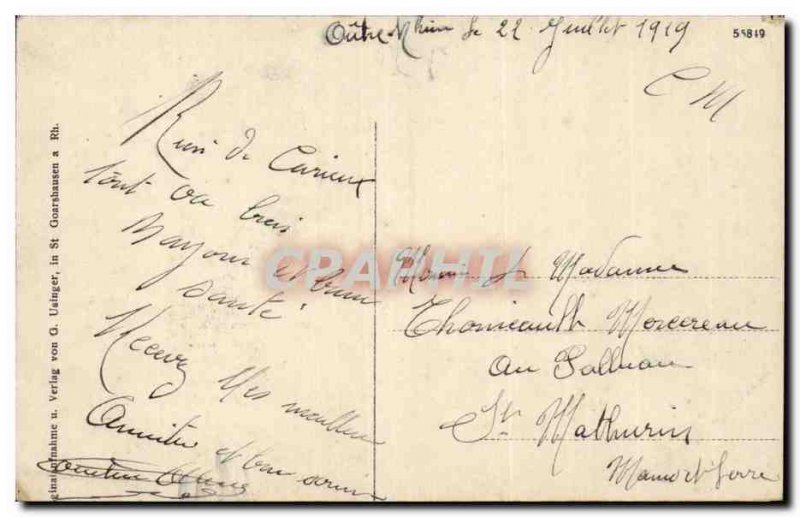 Outre-Rhin le 22 Juillet 1919
55819
C M
Rien de Curieux
tout va bien
Mayour et bonne
santé
Recevez mes meilleures
Amitiés et bon souvenir
Monsieur & Madame
Thomeault Morcereau
Au Palluau
St Mathurin
Maine et Loire
Original-Aufnahme u. Verlag von G. Usinger, in St Goarshausen a Rh.
CPAPHIL